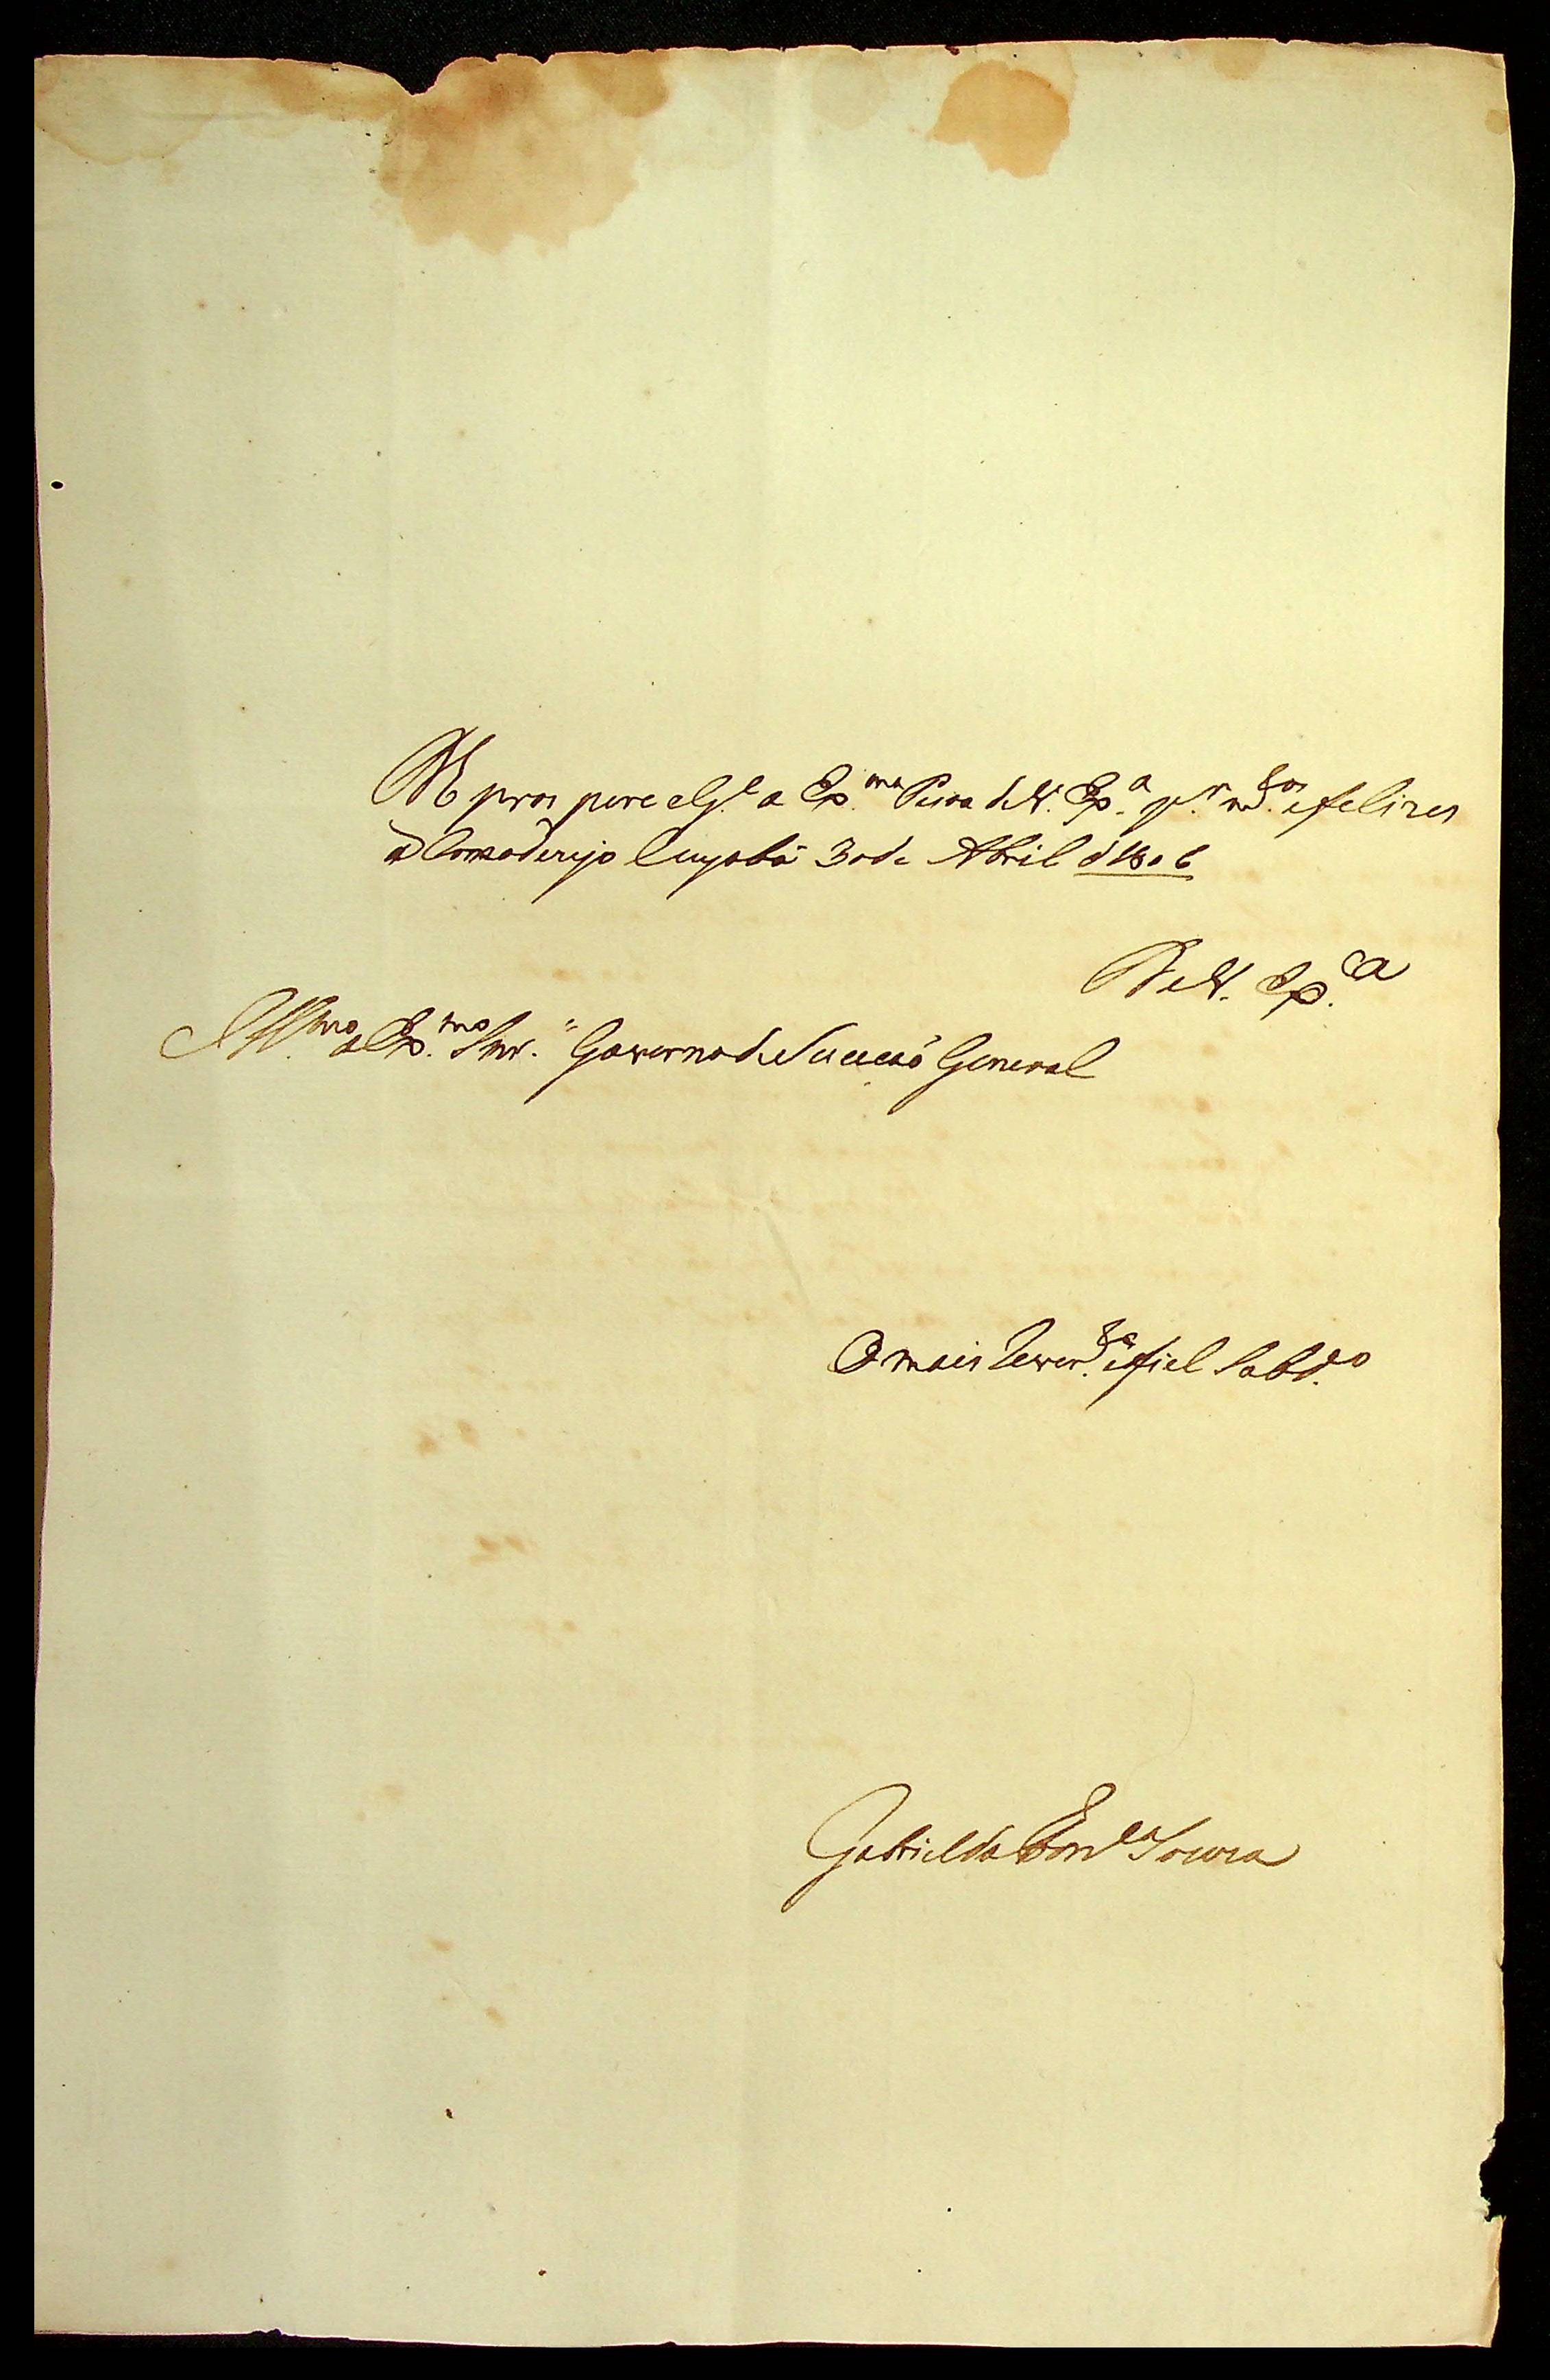 prospere e lg.e a Ex.ma Peçoa de V. Ex.a p.r m.tos e felizes
a. Como dezejo Cuyabá 30 de Abril d 1806
De V. Ex.a
Ill.mo e Ex.mo Snr. Governo de Suceçaõ General
O mais Rever.te e fiel Subd.o
Gabriel da Fon.ca Souza